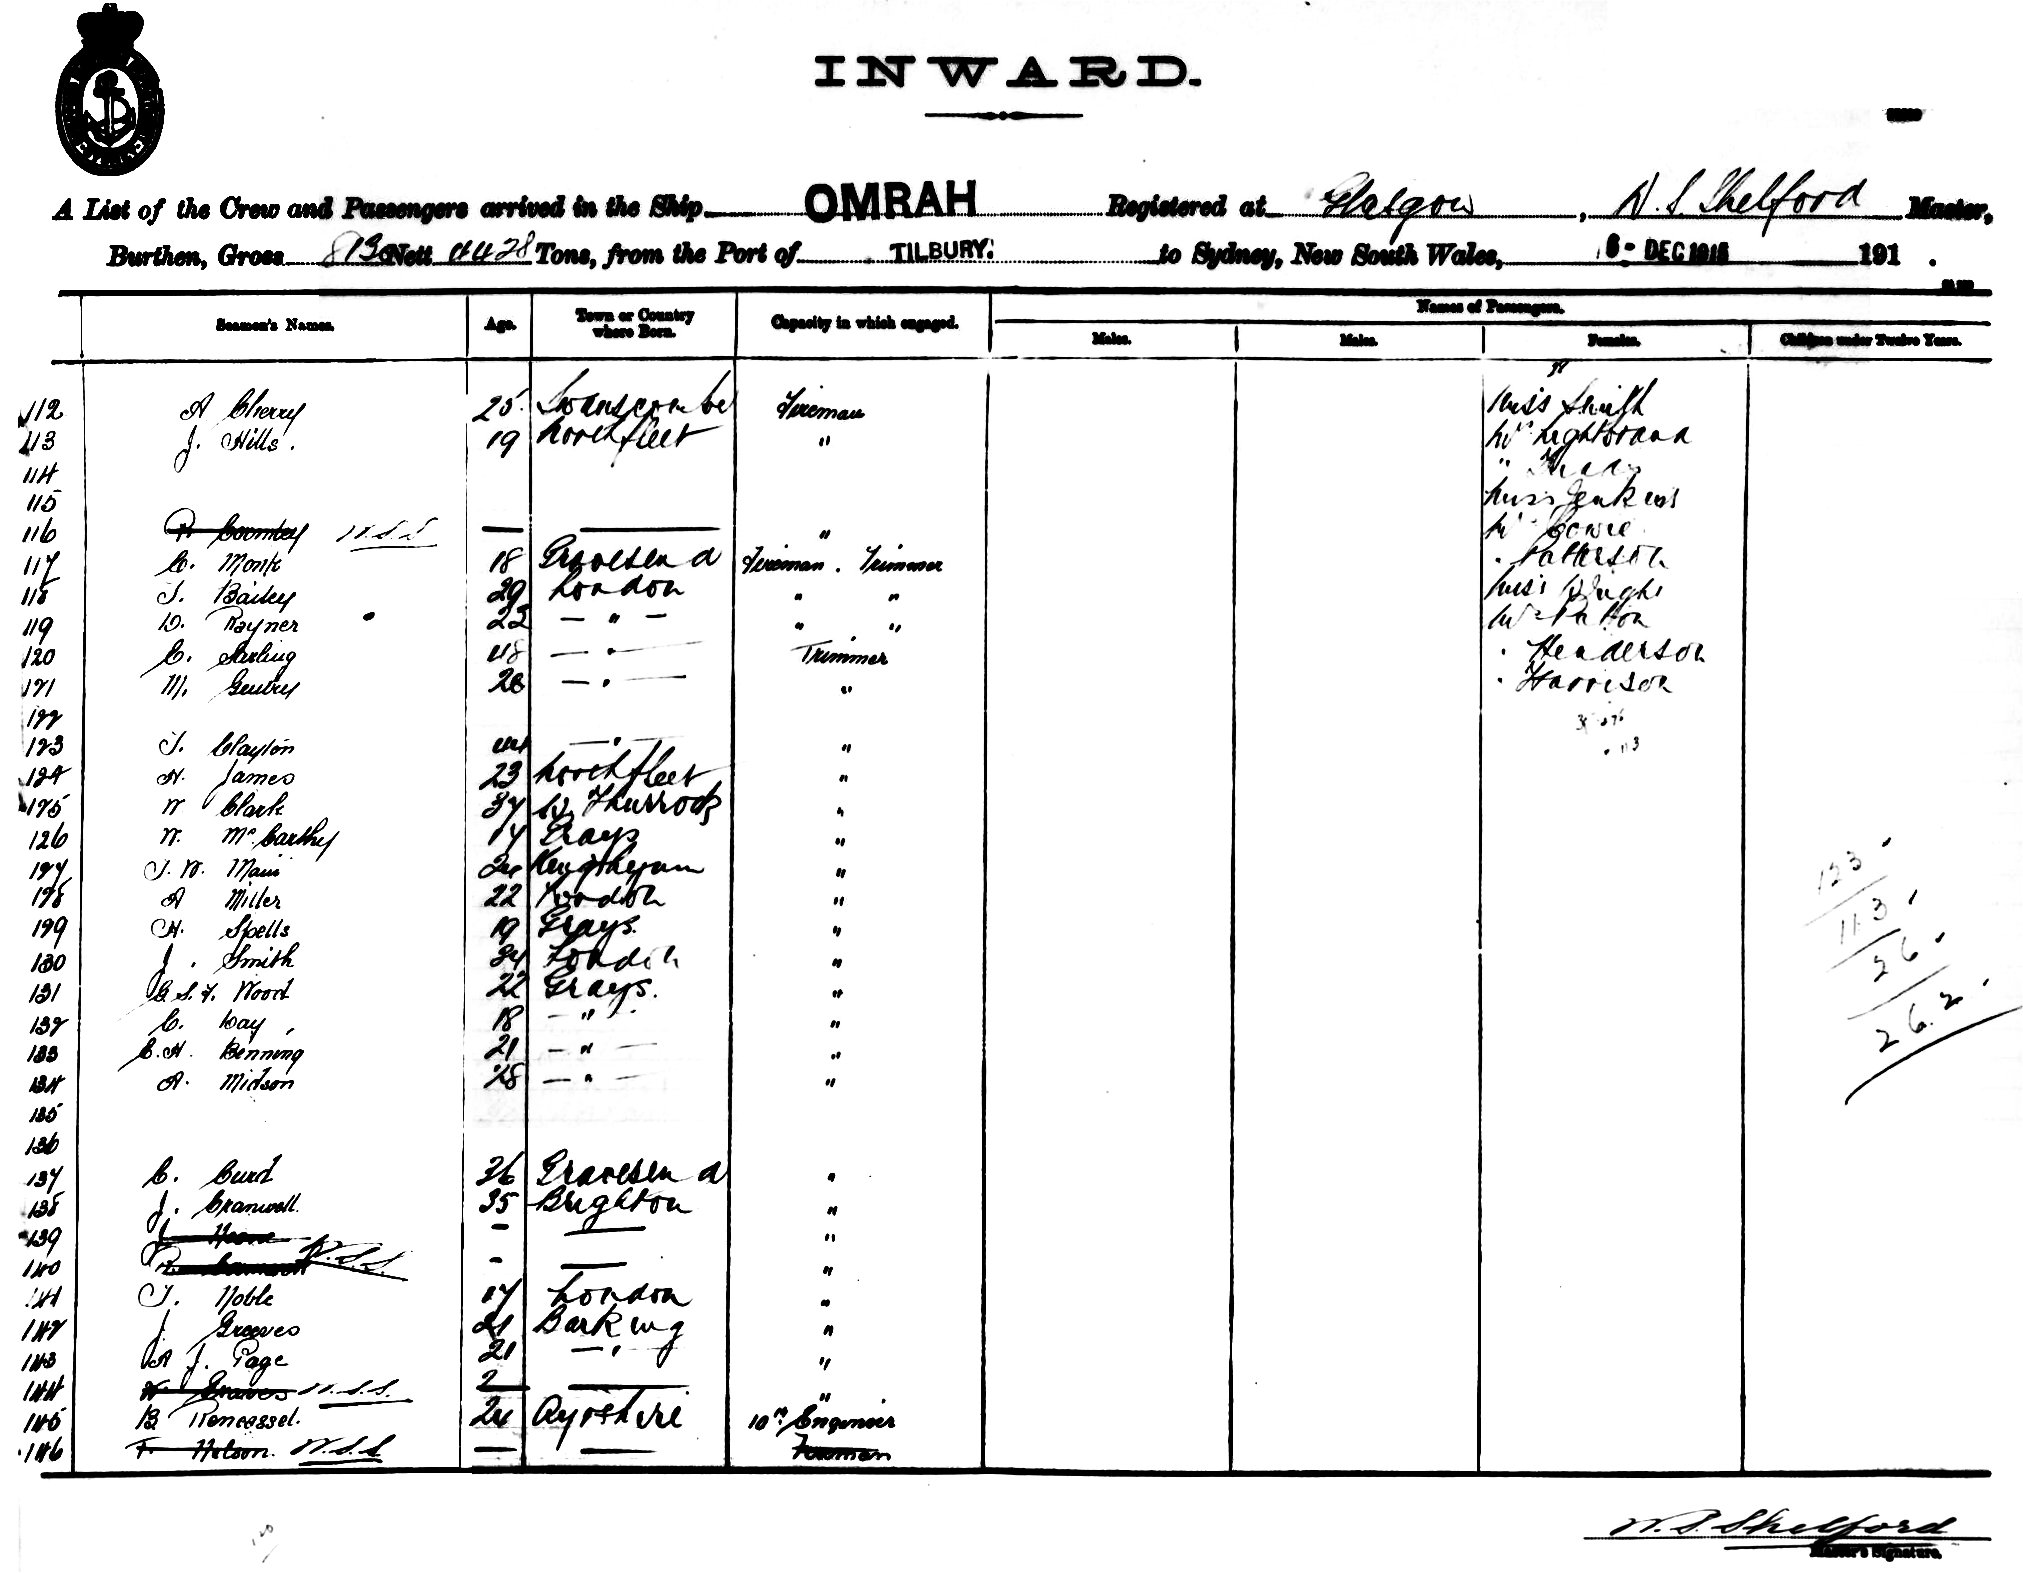 INWARD.
A List of the Crew and Passengers arrived in the Ship OMRAH Registered at Glasgow, W. S. Shelford Master,
Burthen, Gross 8130 Nett 4428 Tons, from the Port of TILBURY. to Sydney, New South Wales, 6- DEC 1915 191 .
Names of Passengers.
Seamen's Names. Age. Town or Country where Born. Capacity in which engaged. Males. Males. Females. Children under Twelve Years.
112 A Cherry 25. Swanscombe Fireman Miss Smith
113 J. Hills. 19 Northfleet " Mrs Lightbrand
114 "
115 Miss Jenkins
116 W.S.S — — " Mrs Cowie
117 C. Monk 18 Gravesend Fireman. Trimmer . Patterson
118 T. Bailey 29 London " " Miss Wright
119 W. Rayner 23 — " — " " Mrs Patton
120 C. Stirling 48 — " — Trimmer . Henderson
121 M. Gentry 28 — " — " . Harrison
122
123 T. Clayton 44 — " — "
124 H. James 23 Northfleet "
125 W Clark 37 W. Thurrock "
126 W. McCarthy 17 Grays "
127 T. W. Main 24 "
128 A Miller 22 London "
129 H. Spells 19 Grays. "
130 J. Smith 34 London "
131 G S. F. Wood 22 Grays. "
132 C. Day 18 — " — "
133 C. H. Benning 21 — " — "
134 A. Midson 28 — " — "
135
136
137 C. Curd 36 Gravesend "
138 J. Cranwell. 35 Brighton "
139 — — "
140 W.S.S. - — "
141 T. Noble 17 London "
142 J Greeves 21 Barking "
143 A J. Page 21 — " — "
144 W. Graves W.S.S. 2 — "
145 B 24 Ayrshire 10th Engineer
146 F. Nelson. W.S.S — — Fireman
123
113
26
262
W. S. Shelford
Master's Signature.